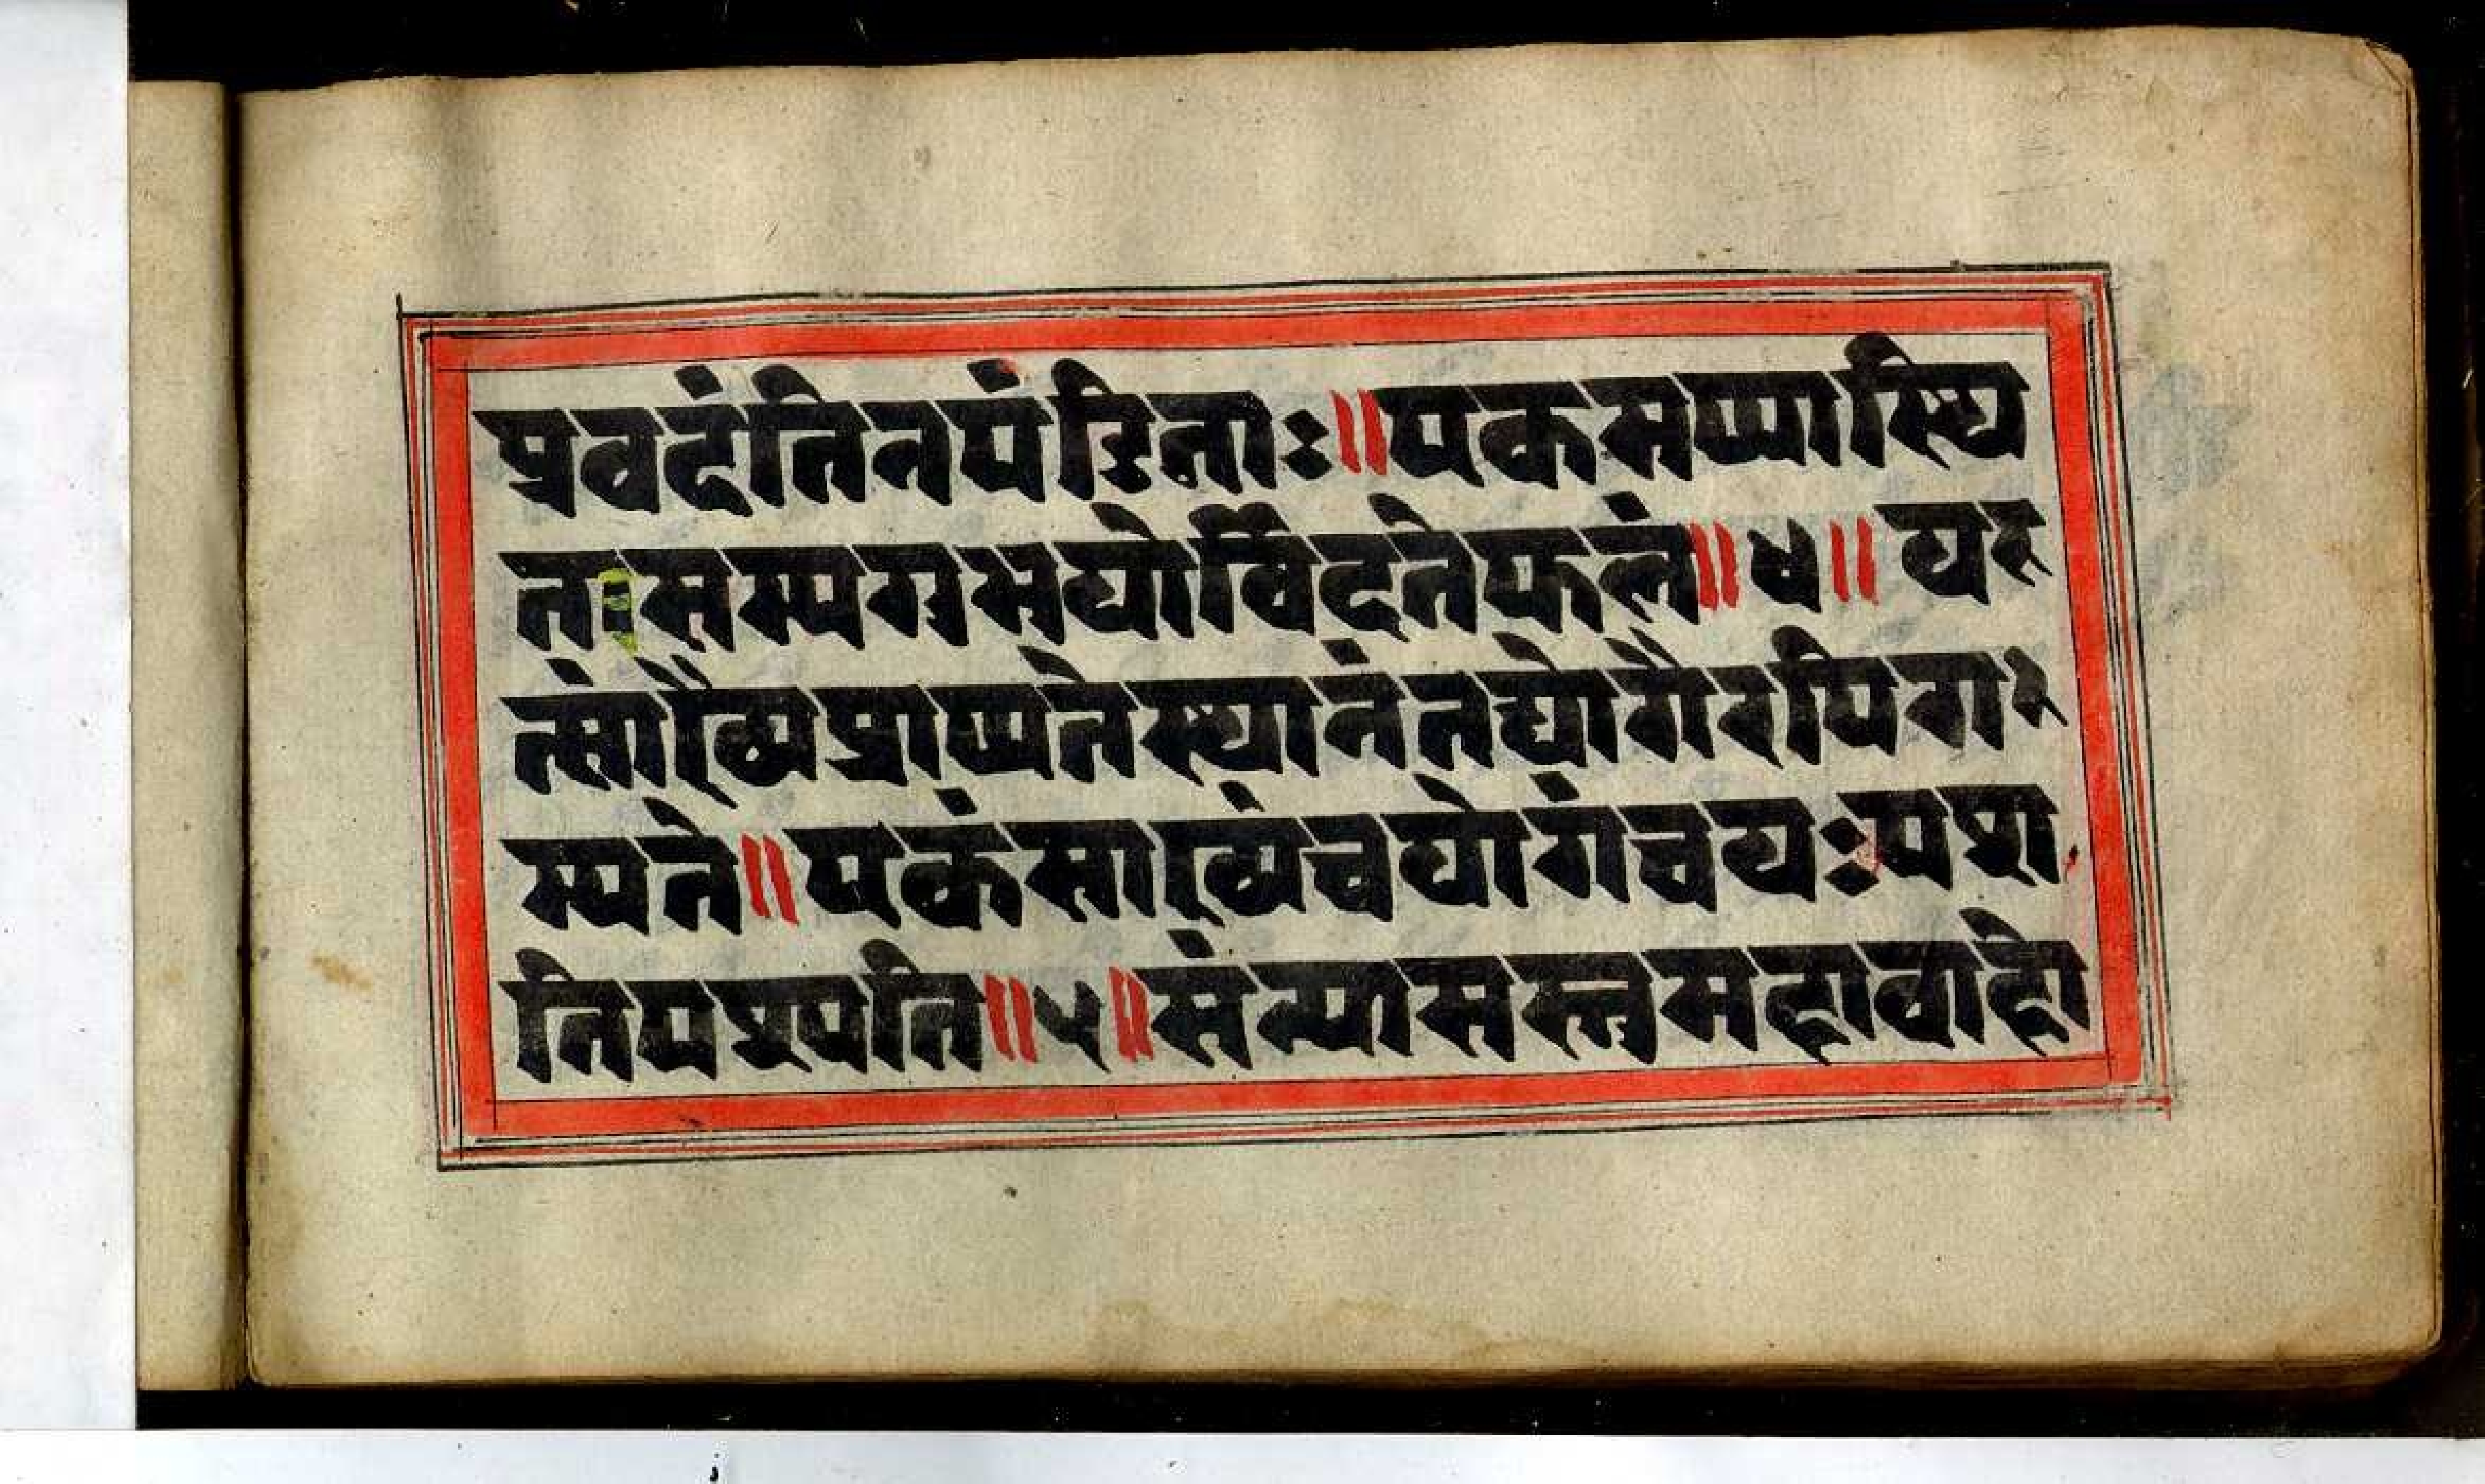 प्रवदंतिनपंडिताः॥एकमप्यास्थि
तः सम्यगुभयोर्विंदतेफलं॥४॥यत्
त्सांख्यैप्राप्यतेस्थानंतद्योगैरपिग
म्यते॥एकंसांख्यंचयोगंचयःपश
तिसपश्यति॥५॥संन्यासस्तुमहाबाहो